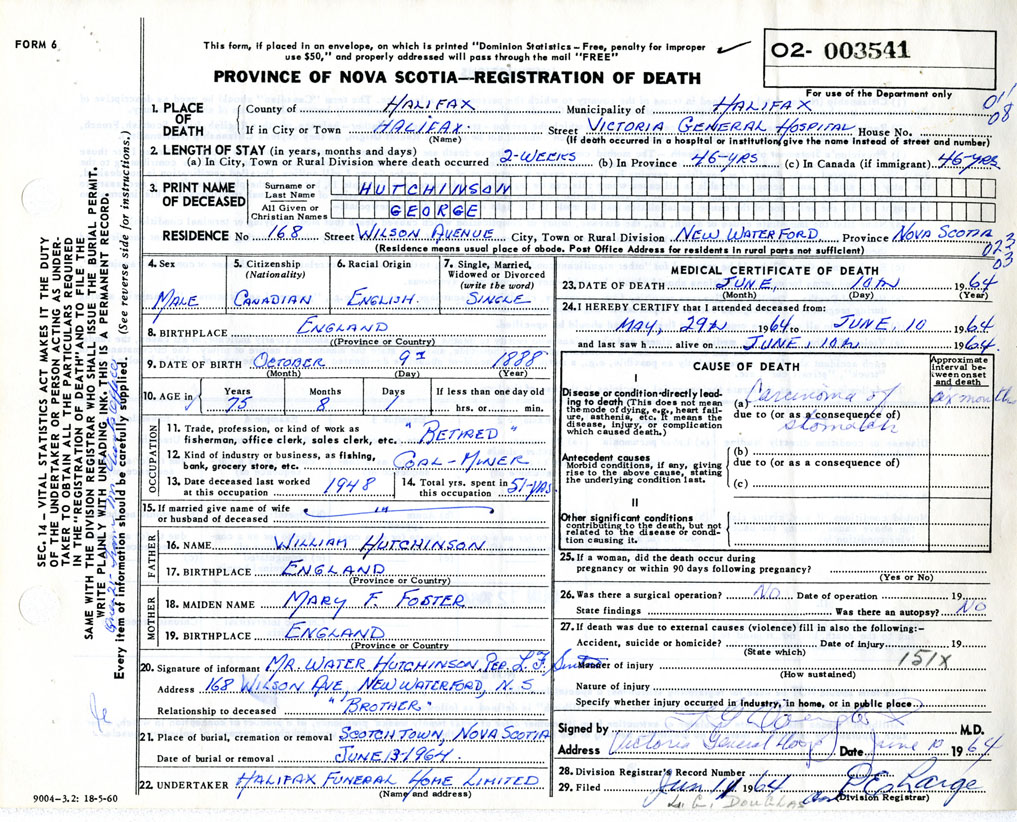 FORM 6
This form, if placed in an envelope, on which is printed "Dominion Statistics – Free, penalty for improper
use $50," and properly addressed will pass through the mail "FREE"
O2- 003541
PROVINCE OF NOVA SCOTIA—REGISTRATION OF DEATH
For use of the Department only
011
08
1. PLACE OF DEATH
County of HALIFAX Municipality of HALIFAX
If in City or Town HALIFAX. Street VICTORIA GENERAL HOSPITAL House No.
(Name) (If death occurred in a hospital or institution, give name instead of street and number)
2. LENGTH OF STAY (in years, months and days)
(a) In City, Town or Rural Division where death occurred 2-WEEKS (b) In Province 46-YRS (c) In Canada (if immigrant) 46-YRS
3. PRINT NAME OF DECEASED
Surname or Last Name HUTCHINSON
All Given or Christian Names GEORGE
RESIDENCE No 168 Street WILSON AVENUE City, Town or Rural Division NEW WATERFORD, Province NOVA SCOTIA
(Residence means usual place of abode. Post Office Address for residents in rural parts not sufficient)
023
03
4. Sex MALE
5. Citizenship (Nationality) CANADIAN
6. Racial Origin ENGLISH.
7. Single, Married, Widowed or Divorced (write the word) SINGLE
8. BIRTHPLACE ENGLAND
((Province or Country)
9. DATE OF BIRTH OCTOBER 9 1888
(Month) (Day) (Year)
10. AGE in Years 75 Months 8 Days 1 If less than one day old hrs. or min.
OCCUPATION
11. Trade, profession, or kind of work as
fisherman, office clerk, sales clerk, etc. "RETIRED"
12. Kind of industry or business, as fishing,
bank, grocery store, etc. COAL-MINER
13. Date deceased last worked at this occupation 1948
14. Total yrs. spent in this occupation 51-YRS
15. If married give name of wife
or husband of deceased
FATHER
16. NAME WILLIAM HUTCHINSON
17. BIRTHPLACE ENGLAND
(Province or Country)
MOTHER
18. MAIDEN NAME MARY F. FOSTER
19. BIRTHPLACE ENGLAND
(Province or Country)
20. Signature of informant MR. WATER HUTCHINSON. PER. L.F. Smith
Address 168 WILSON AVE, NEW WATERFORD, N.S
Relationship to deceased "BROTHER"
21. Place of burial, cremation or removal SCOTCHTOWN, NOVA SCOTIA
Date of burial or removal JUNE 13-1964.
22. UNDERTAKER HALIFAX FUNERAL HOME LIMITED
(Name and address)
9004-3.2: 18-5-60
MEDICAL CERTIFICATE OF DEATH
23. DATE OF DEATH JUNE, 10TH 1964
(Month) (Day) (Year)
24. I HEREBY CERTIFY that I attended deceased from:
MAY, 29TH 1964 to JUNE, 10 1964
and last saw h alive on JUNE, 10TH 1964.
CAUSE OF DEATH
Approximate interval between onset and death
I
Disease or condition directly leading to death (This does not mean the mode of dying, e.g., heart failure, asthenia, etc. It means the disease, injury, or complication which caused death.)
(a) Carcinoma of
due to (or as a consequence of)
stomach
six months
Antecedent causes
Morbid conditions, if any, giving rise to the above cause, stating the underlying condition last.
(b)
due to (or as a consequence of)
(c)
II
Other significant conditions
contributing to the death, but not related to the disease or condition causing it.
25. If a woman, did the death occur during
pregnancy or within 90 days following pregnancy?
(Yes or No)
26. Was there a surgical operation? NO Date of operation 19
State findings Was there an autopsy? NO
27. If death was due to external causes (violence) fill in also the following:–
Accident, suicide or homicide? Date of injury 19
(State which)
151X
Manner of injury
(How sustained)
Nature of injury
Specify whether injury occurred in industry, in home, or in public place
Signed by M.D.
Address Victoria General Hosp Date June 10 1964
28. Division Registrar's Record Number
29. Filed Jun 11 1964
(Division Registrar)
L. E. DOUGLAS
SEC. 14 – VITAL STATISTICS ACT MAKES IT THE DUTY
OF THE UNDERTAKER OR PERSON ACTING AS UNDERTAKER
TO OBTAIN ALL THE PARTICULARS REQUIRED
IN THE "REGISTRATION OF DEATH" AND TO FILE THE
SAME WITH THE DIVISION REGISTRAR WHO SHALL ISSUE THE BURIAL PERMIT.
WRITE PLAINLY WITH UNFADING INK. THIS IS A PERMANENT RECORD.
Every item of information should be carefully supplied. (See reverse side for instructions.)